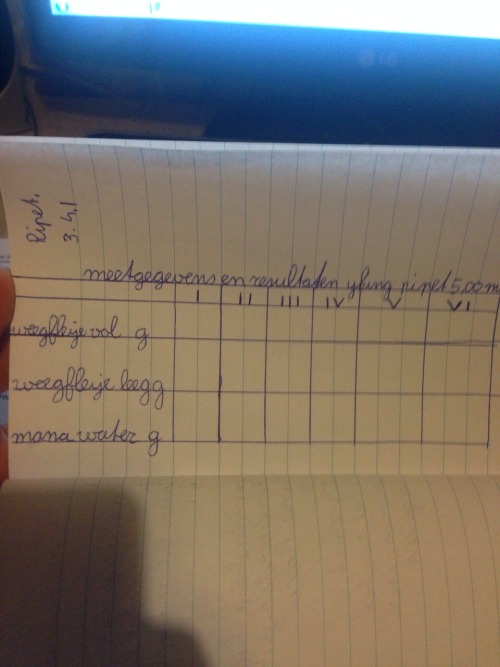 Pipet.
3.4.1
meetgegevens en resultaten yking pipet 5,00 m
I II III IV V VI
weegflesje vol g
weegflesje leeg g
massa water g
LG